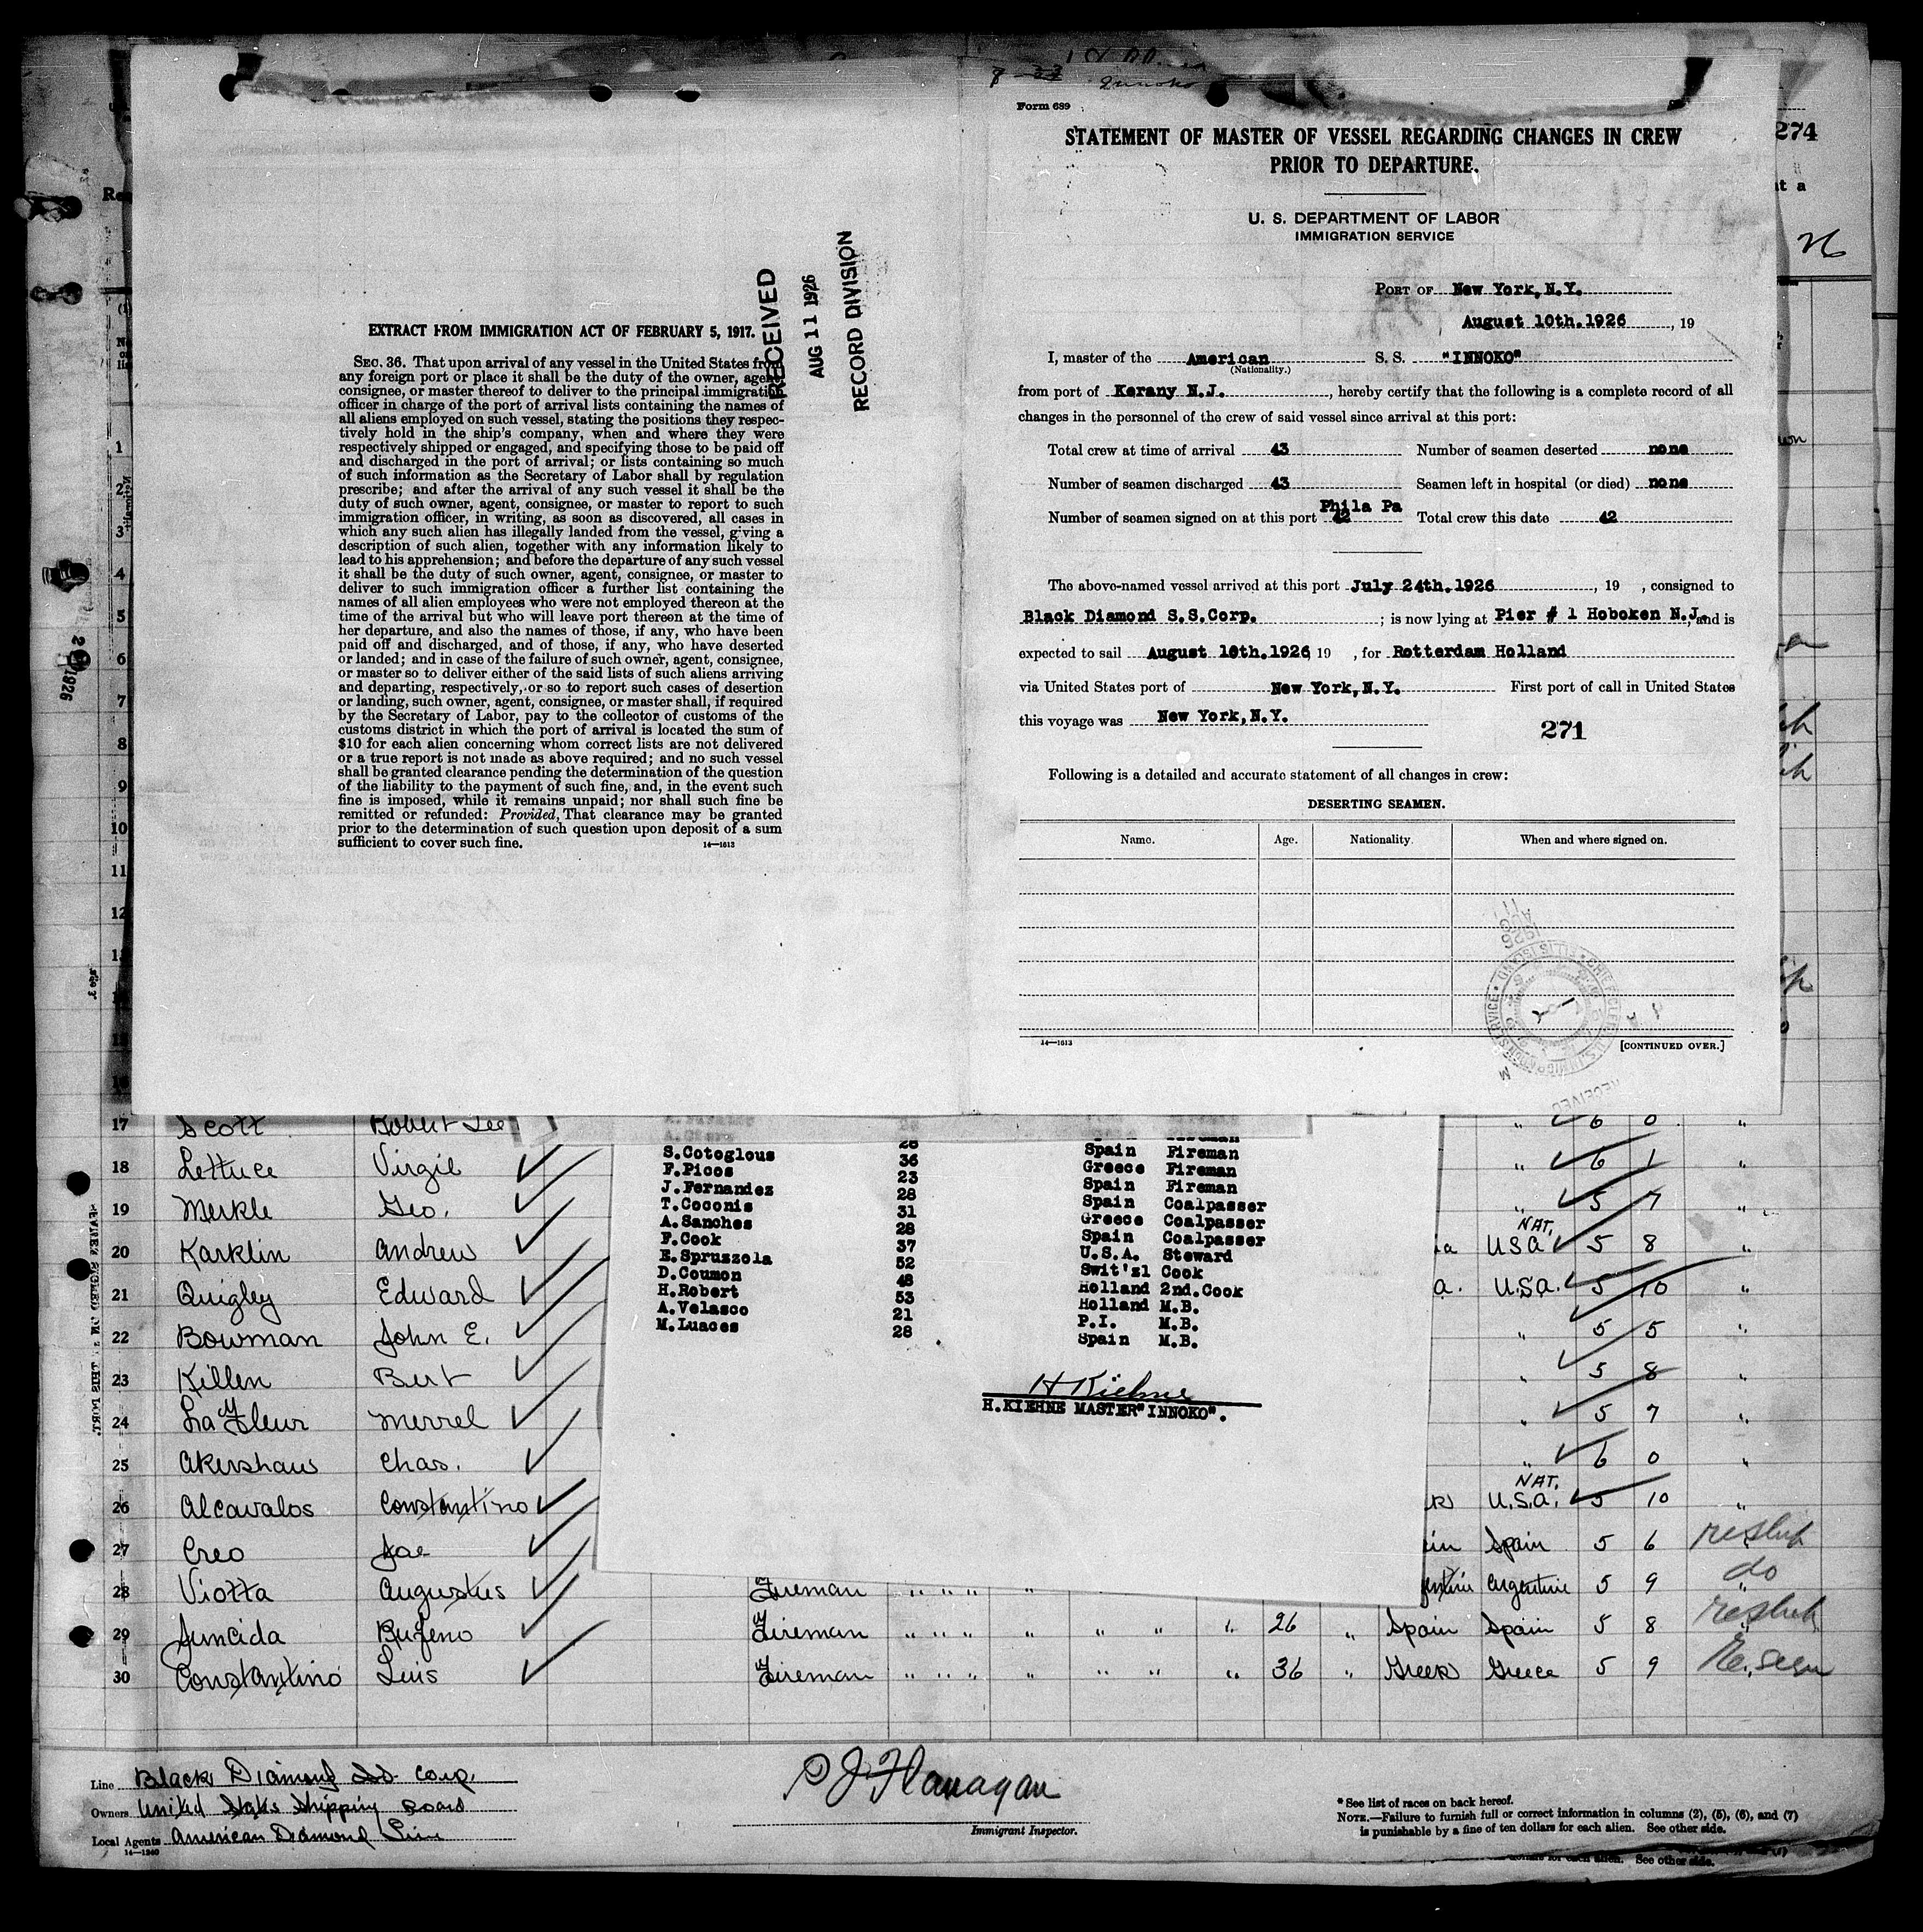 EXTRACT FROM IMMIGRATION ACT OF FEBRUARY 5, 1917.
SEC. 36. That upon arrival of any vessel in the United States from
any foreign port or place it shall be the duty of the owner, agent,
consignee, or master thereof to deliver to the principal immigration
officer in charge of the port of arrival lists containing the names of
all aliens employed on such vessel, stating the positions they respec-
tively hold in the ship's company, when and where they were
respectively shipped or engaged, and specifying those to be paid off
and discharged in the port of arrival; or lists containing so much
of such information as the Secretary of Labor shall by regulation
prescribe; and after the arrival of any such vessel it shall be the
duty of such owner, agent, consignee, or master to report to such
immigration officer, in writing, as soon as discovered, all cases in
which any such alien has illegally landed from the vessel, giving a
description of such alien, together with any information likely to
lead to his apprehension; and before the departure of any such vessel
it shall be the duty of such owner, agent, consignee, or master to
deliver to such immigration officer a further list containing the
names of all alien employees who were not employed thereon at the
time of the arrival but who will leave port thereon at the time of
her departure, and also the names of those, if any, who have been
paid off and discharged, and of those, if any, who have deserted
or landed; and in case of the failure of such owner, agent, consignee,
or master so to deliver either of the said lists of such aliens arriving
and departing, respectively, or so to report such cases of desertion
or landing, such owner, agent, consignee, or master shall, if required
by the Secretary of Labor, pay to the collector of customs of the
customs district in which the port of arrival is located the sum of
$10 for each alien concerning whom correct lists are not delivered
or a true report is not made as above required; and no such vessel
shall be granted clearance pending the determination of the question
of the liability to the payment of such fine, and, in the event such
fine is imposed, while it remains unpaid; nor shall such fine be
remitted or refunded: Provided, That clearance may be granted
prior to the determination of such question upon deposit of a sum
sufficient to cover such fine.
14—1613
RECEIVED
AUG 11 1926
RECORD DIVISION
Form 689
STATEMENT OF MASTER OF VESSEL REGARDING CHANGES IN CREW
PRIOR TO DEPARTURE.
U. S. DEPARTMENT OF LABOR
IMMIGRATION SERVICE
PORT OF New York, N.Y.
August 10th. 1926, 19
I, master of the American S. S. "INNOKO"
(Nationality.)
from port of Kerany N.J., hereby certify that the following is a complete record of all
changes in the personnel of the crew of said vessel since arrival at this port:
Total crew at time of arrival 43 Number of seamen deserted none
Number of seamen discharged 43 Seamen left in hospital (or died) none
Phila Pa
Number of seamen signed on at this port 42 Total crew this date 42
The above-named vessel arrived at this port July 24th. 1926, 19 , consigned to
Black Diamond S.S.Corp. ; is now lying at Pier # 1 Hoboken N.J., and is
expected to sail August 10th. 1926, 19 , for Rotterdam Holland
via United States port of New York, N.Y. First port of call in United States
this voyage was New York, N.Y.
271
Following is a detailed and accurate statement of all changes in crew:
DESERTING SEAMEN.
Name. Age. Nationality. When and where signed on.
14—1613
[CONTINUED OVER.]
274
26
17 Scott Robert Lee " 6 0 "
18 Lettuce Virgil " 6 1 "
19 Merkle Geo. " 5 7 "
20 Karklin Andrew NAT. U.S.A. 5 8 "
21 Quigley Edward U.S.A. 5 10 "
22 Bowman John E. " 5 5 "
23 Killen Bert " 5 8 "
24 LaFleur Merrel " 5 7 "
25 Akershaw Chas. " 6 0 "
26 Alcavalos Constantino NAT. U.S.A. 5 10 "
27 Creo Joe Spain 5 6
28 Viotta Augustus Fireman " " " Argentine 5 9 do
29 Suncida Rufeno Fireman " " " " " " " 26 " Spain Spain 5 8
30 Constantino Luis Fireman " " " " " " " 36 " Greek Greece 5 9
S.Cotoglous 36 Spain Fireman
F.Picos 23 Greece Fireman
J.Fernandez 28 Spain Fireman
T.Coconis 31 Spain Coalpasser
A.Sanches 28 Greece Coalpasser
F.Cook 37 Spain Coalpasser
E.Spruzzola 52 U.S.A. Steward
D.Coumon 48 Swit'zl Cook
H.Robert 53 Holland 2nd.Cook
A.Velasco 21 Holland M.B.
M.Luaces 28 P.I. M.B.
Spain M.B.
H Kiehne
H.KIEHNE MASTER"INNOKO".
Line Black Diamond SS Corp.
Owners United States Shipping Board
Local Agents American Diamond Line
14—1240
P J Flanagan
Immigrant Inspector.
* See list of races on back hereof.
NOTE.—Failure to furnish full or correct information in columns (2), (5), (6), and (7)
is punishable by a fine of ten dollars for each alien. See other side.
See other side.